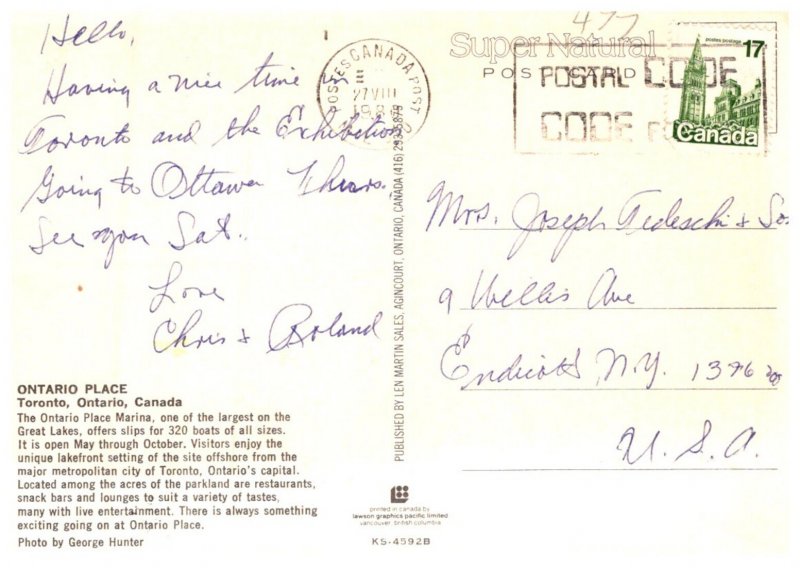 Hello,
Having a nice time in
Toronto and the Exhibition
Going to Ottawa Thurs.
See you Sat.
Love
Chris & Roland
ONTARIO PLACE
Toronto, Ontario, Canada
The Ontario Place Marina, one of the largest on the
Great Lakes, offers slips for 320 boats of all sizes.
It is open May through October. Visitors enjoy the
unique lakefront setting of the site offshore from the
major metropolitan city of Toronto, Ontario's capital.
Located among the acres of the parkland are restaurants,
snack bars and lounges to suit a variety of tastes,
many with live entertainment. There is always something
exciting going on at Ontario Place.
Photo by George Hunter
POSTES CANADA POST
27 VIII
PUBLISHED BY LEN MARTIN SALES, AGINCOURT, ONTARIO, CANADA (416) 293-5879
printed in canada by
lawson graphics pacific limited
vancouver, british columbia
KS-4592B
477
Super Natural
POSTCARD
POSTAL CODE
CODE
postes postage
17
Canada
Mrs. Joseph Tedeschi & So
9 Willis Ave
Endicott N.Y. 13760
U.S.A.